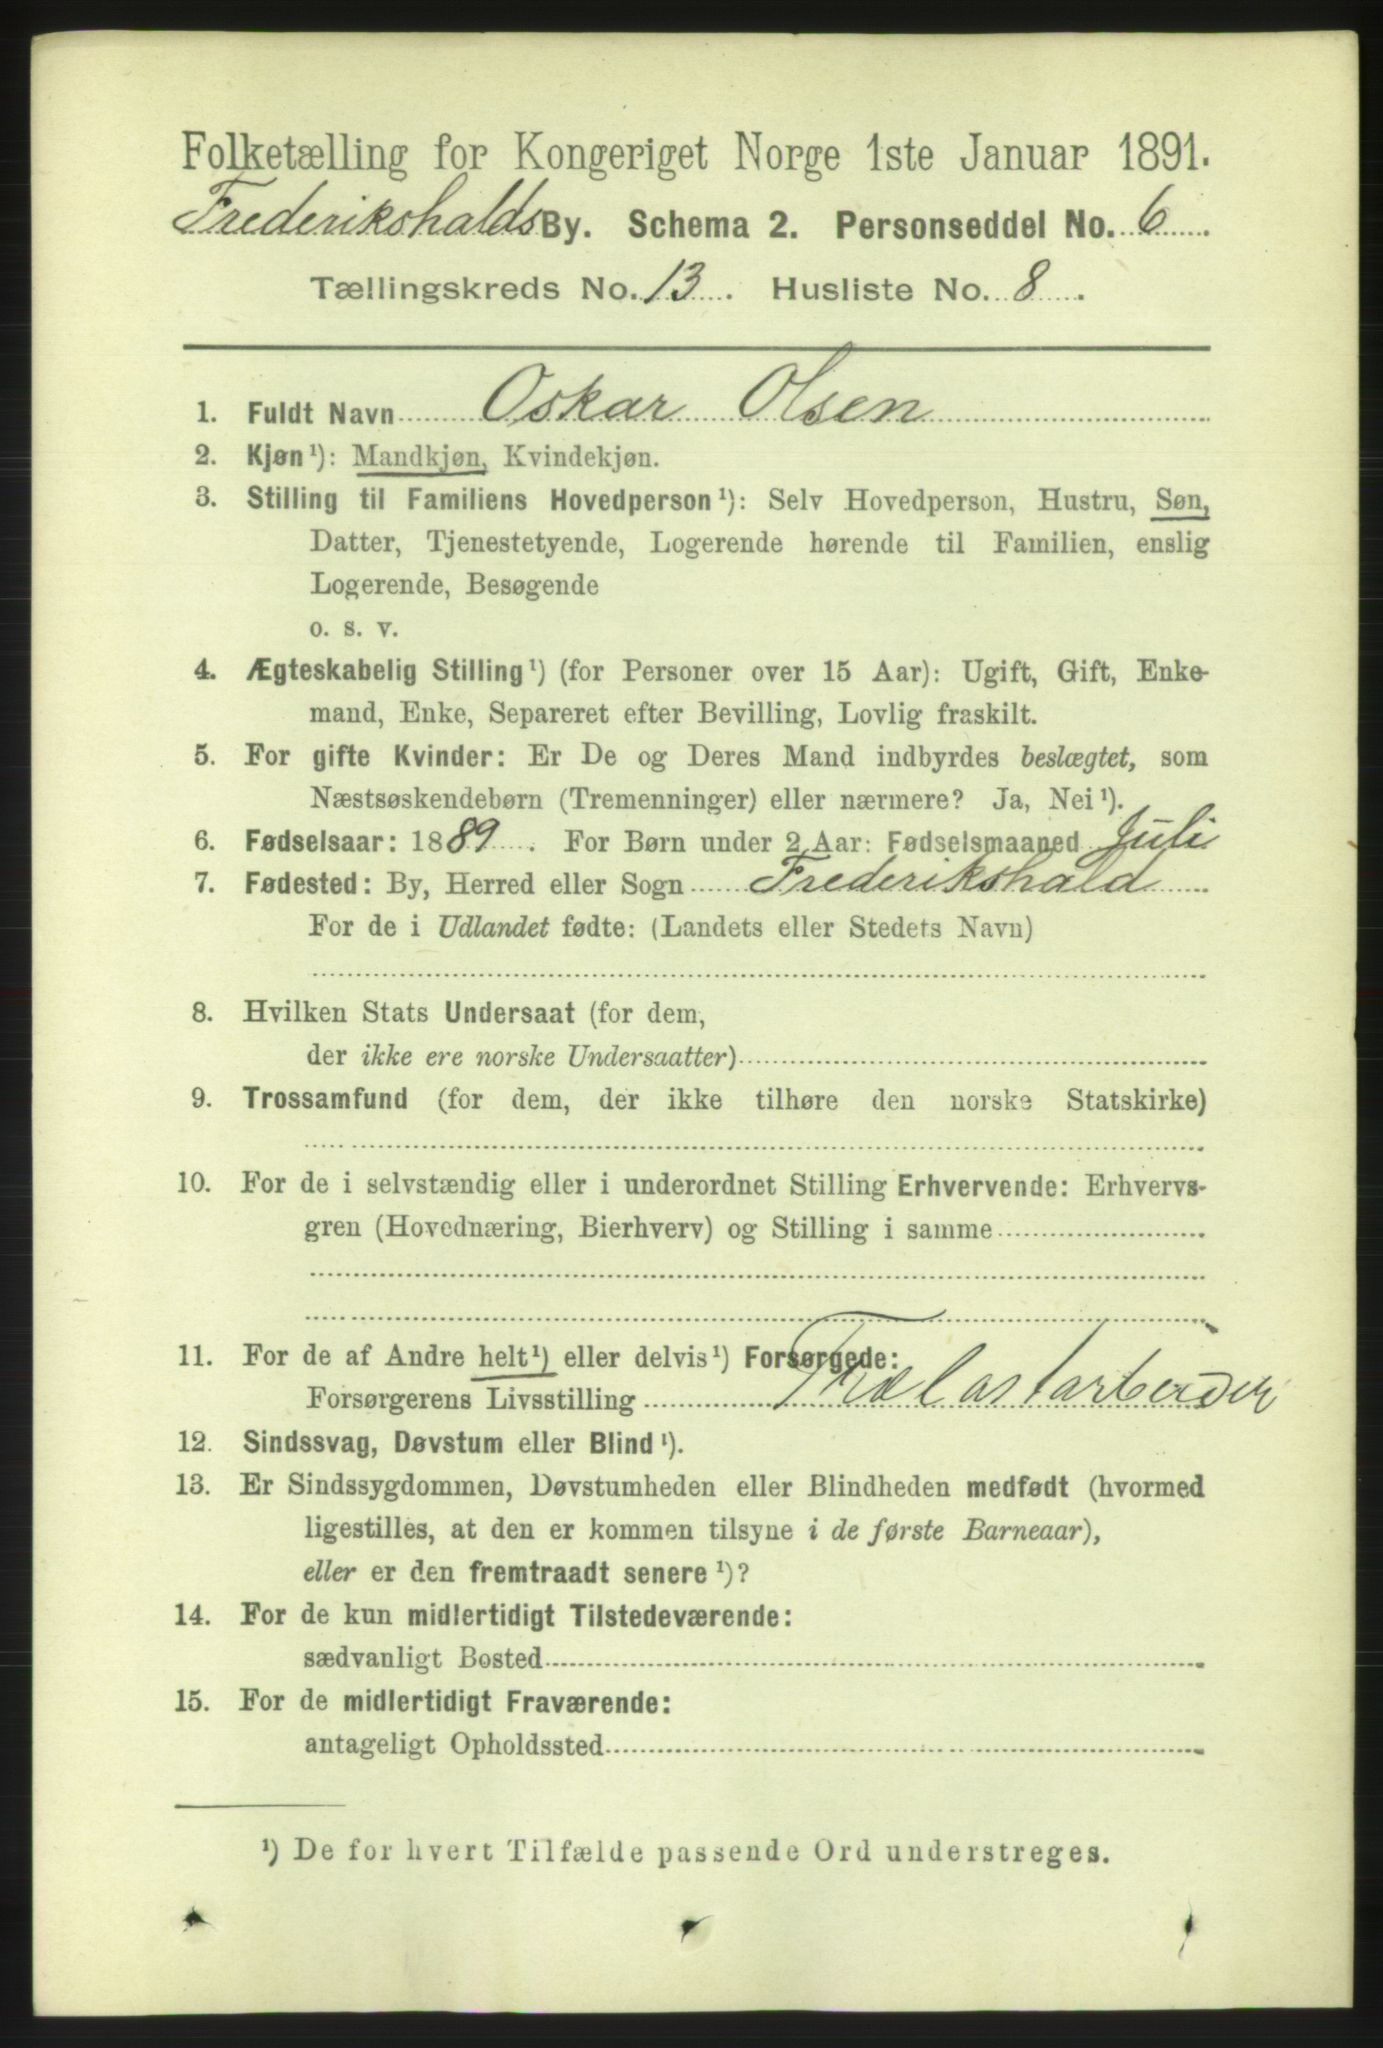 Folketælling for Kongeriget Norge 1ste Januar 1891.
Frederikshalds By. Schema 2. Personseddel No. 6
Tællingskreds No. 13. Husliste No. 8.
1. Fuldt Navn Oskar Olsen
2. Kjøn¹): Mandkjøn, Kvindekjøn.
3. Stilling til Familiens Hovedperson¹): Selv Hovedperson, Hustru, Søn,
Datter, Tjenestetyende, Logerende hørende til Familien, enslig
Logerende, Besøgende
o. s. v.
4. Ægteskabelig Stilling¹) (for Personer over 15 Aar): Ugift, Gift, Enke-
mand, Enke, Separeret efter Bevilling, Lovlig fraskilt.
5. For gifte Kvinder: Er De og Deres Mand indbyrdes beslægtet, som
Næstsøskendebørn (Tremenninger) eller nærmere? Ja, Nei¹).
6. Fødselsaar: 1889. For Børn under 2 Aar: Fødselsmaaned Juli
7. Fødested: By, Herred eller Sogn Frederikshald
For de i Udlandet fødte: (Landets eller Stedets Navn)
8. Hvilken Stats Undersaat (for dem,
der ikke ere norske Undersaatter)
9. Trossamfund (for dem, der ikke tilhøre den norske Statskirke)
10. For de i selvstændig eller i underordnet Stilling Erhvervende: Erhvervs-
gren (Hovednæring, Bierhverv) og Stilling i samme
11. For de af Andre helt¹) eller delvis¹) Forsørgede:
Forsørgerens Livsstilling Trælastarbeider
12. Sindssvag, Døvstum eller Blind¹).
13. Er Sindssygdommen, Døvstumheden eller Blindheden medfødt (hvormed
ligestilles, at den er kommen tilsyne i de første Barneaar),
eller er den fremtraadt senere¹)?
14. For de kun midlertidigt Tilstedeværende:
sædvanligt Bosted
15. For de midlertidigt Fraværende:
antageligt Opholdssted
¹) De for hvert Tilfælde passende Ord understreges.